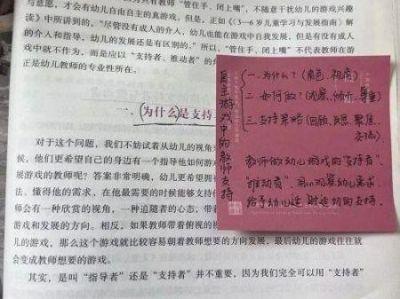 与意愿，才会有幼儿自由自主的真游戏。
"管住手、闭上嘴"，不随意干扰幼儿的游戏兴趣
中所讲到的。"尽管没有成人的介入，幼儿也能在游戏中自我发展，但是有没有成人
的介入和指导，幼儿的发展还是有区别的。"所以，"管住手、闭上嘴"不代表教师在游
戏中就不作为，而是应以"支持者、推动者"的
正是幼儿教师的专业性所在。
一、(为什么)是支持
对于这个问题，我们不妨试着从幼儿的视角
候，他们更希望自己的身边有一个指导他如何游
展游戏的教师呢？答案非常明确，幼儿更希望拥
法、懂得他的需求，在他最需要的时候能够支持
师会有一种欣赏的视角，一种追随者的心态，带着
游戏和发展的方向。相反，如果教师带着俯视的
儿的游戏，那么这个游戏就比较容易朝着教师想要的方向发展，最后幼儿游戏往往就
会变成教师想要的游戏。
其实，是叫"指导者"还是"支持者"并不重要，因为我们完全可以用"支持者"
自主游戏中的教师支持
一.为什么？(角色、视角)
二.如何做？(观察、倾听、尊重)
三.支持策略(回顾、
教师做幼儿游戏的支持者、
"推动者"，
给予幼儿适时适切的支持.